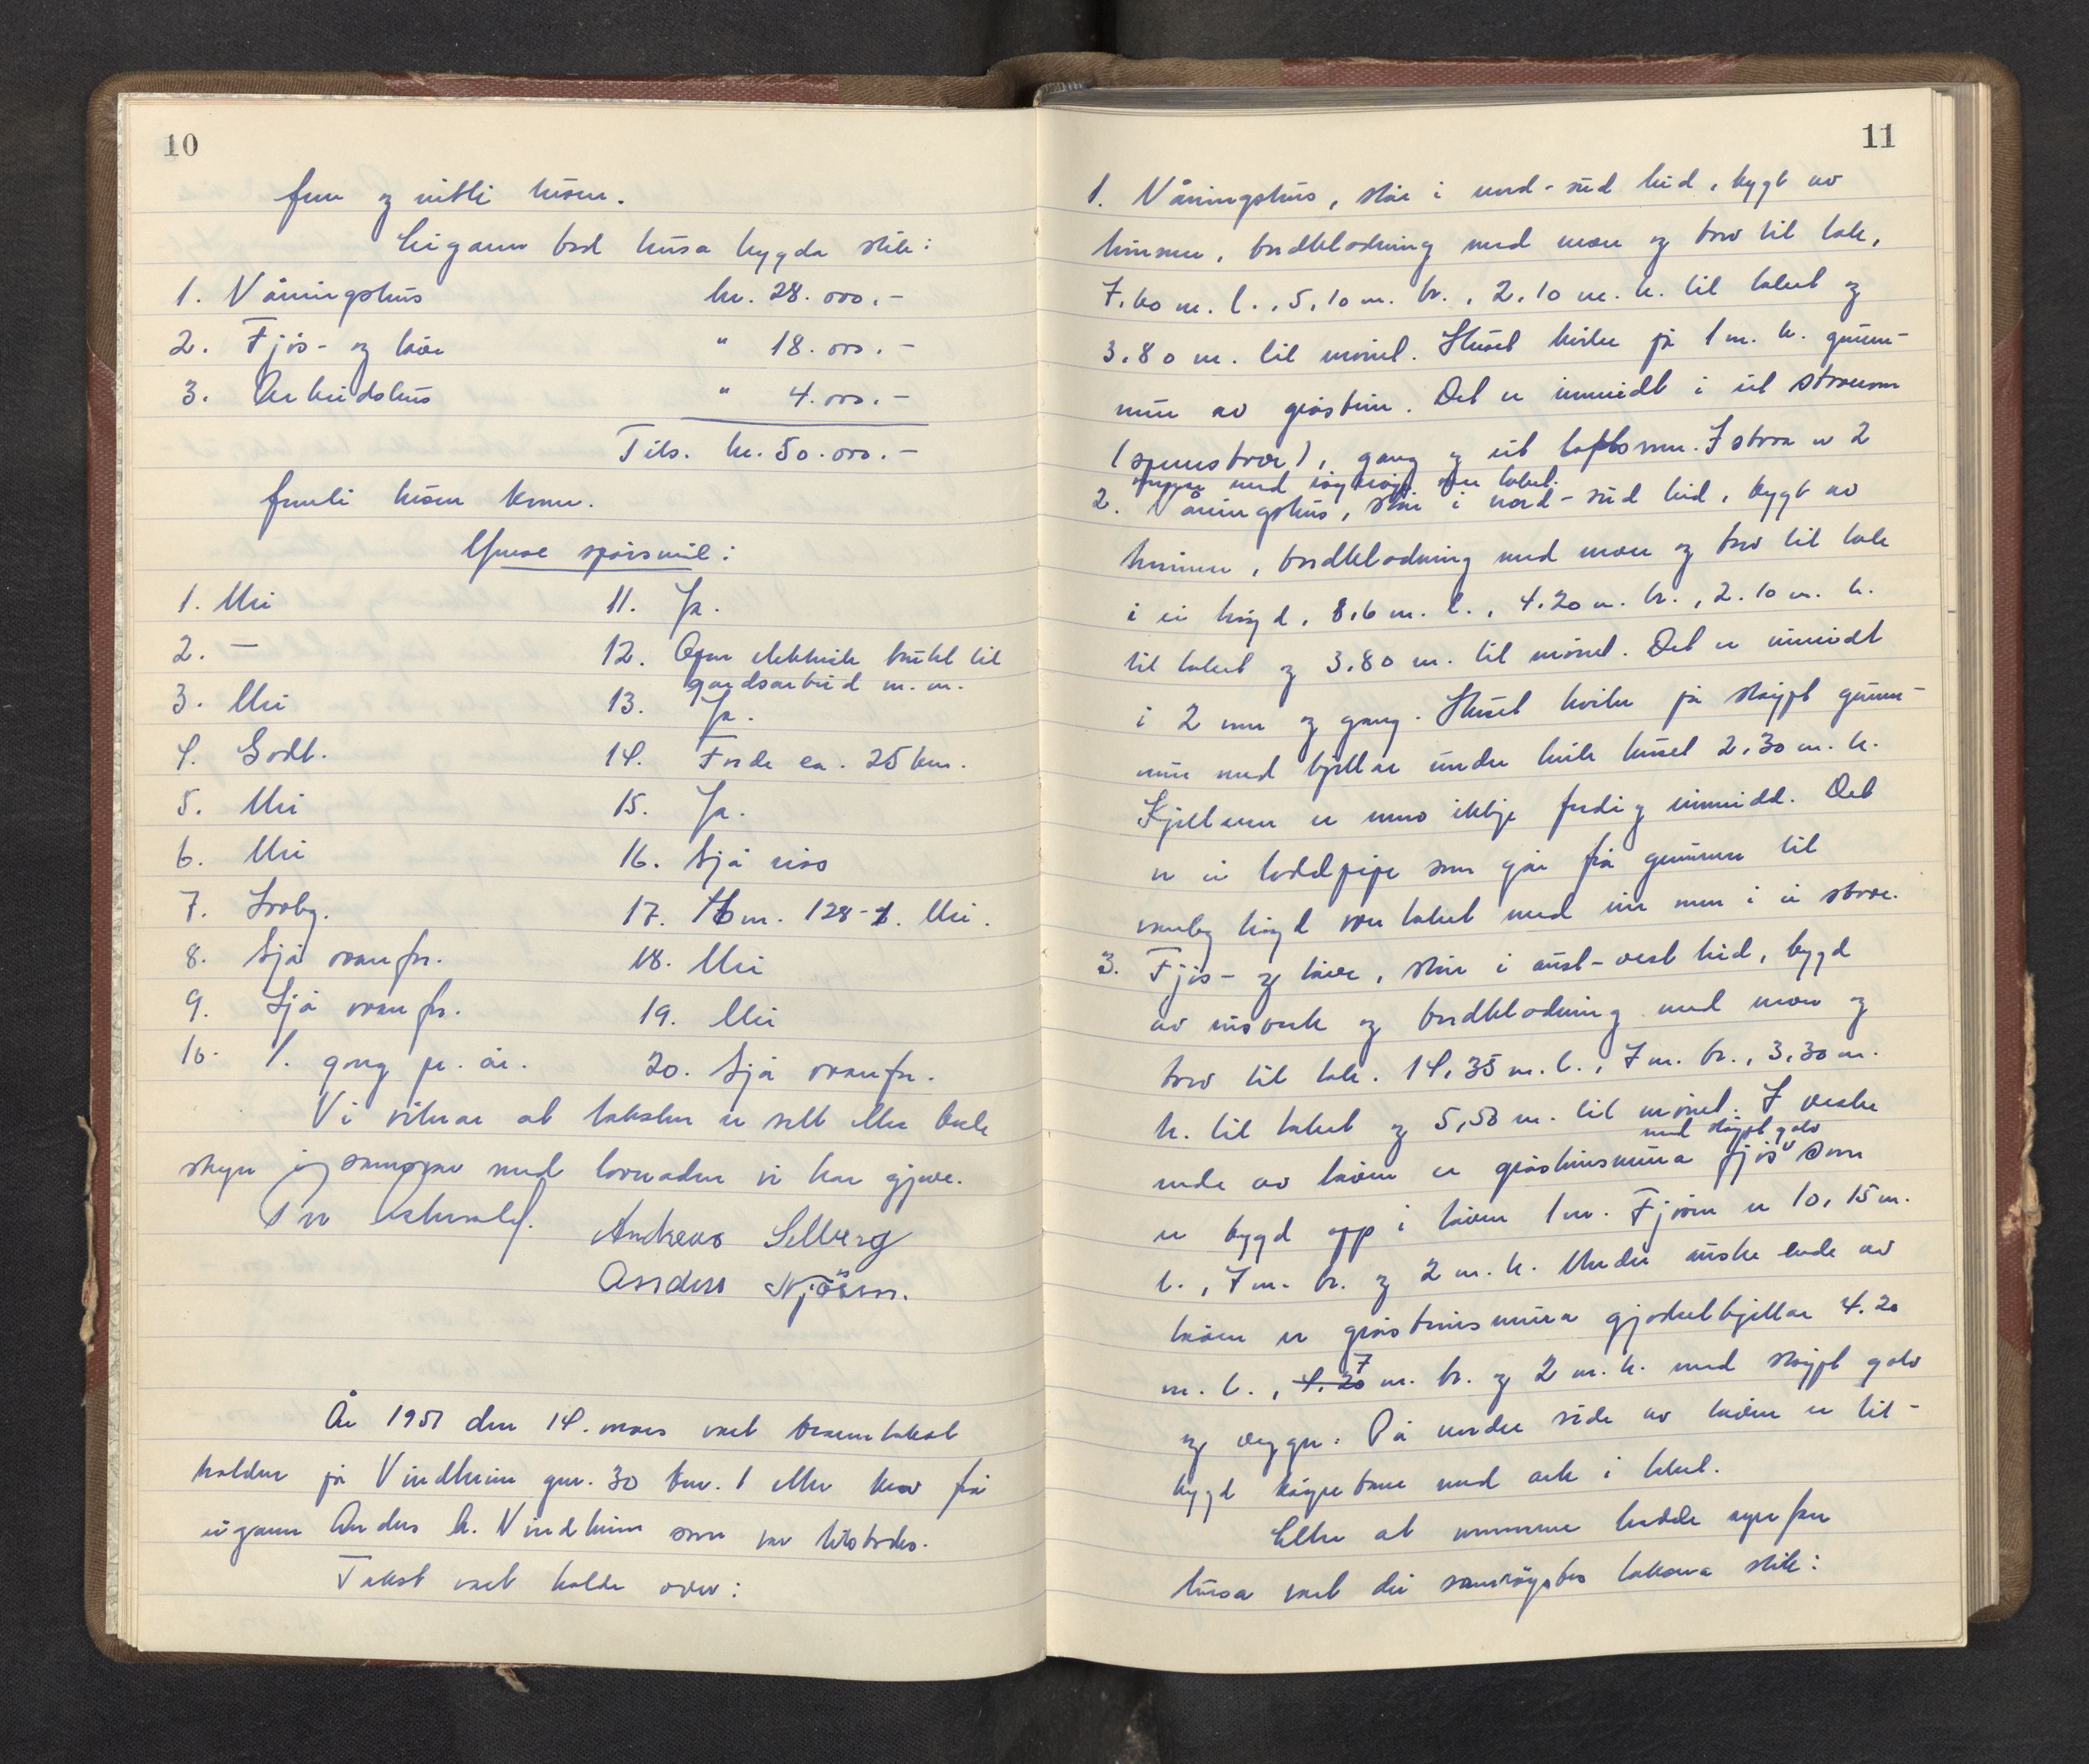 10
fem og vitli husen.
Eigaren bad husa bygda slik:
1. Våningshus kr. 28.000.-
2. Fjøs- og løe " 18.000.-
3. Arbeidshus " 4.000.-
Tils. kr. 50.000.-
femti tusen kroner.
Ymse spørsmål:
1. Nei 11. Ja.
2. — 12. Open elektrisk brukt til
gardsarbeid m.m.
3. Nei 13. Ja.
4. Godt. 14. Førde ca. 25 km.
5. Nei 15. Ja.
6. Nei 16. Sjå riss
7. 17. m. 128- Nei.
8. Sjå ovanfor. 18. Nei
9. Sjå ovanfor. 19. Nei
10. 1. gong pr. år. 20. Sjå ovanfor.
Vi vitnar at taksten er sett etter beste
skyn i samsvar med lovnaden vi har gjeve.
Andreas Selberg
Anders
År 1951 den 14. mars vart branntakst
halden på Vindheim gnr. 30 bnr. 1 etter krav frå
eigaren Anders A. Vindheim som var tilstades.
Takst vart halde over:
11
1. Våningshus, står i nord-sud leid, bygt av
timmer, bordkledning med mon og torv til tak,
7.60 m. l., 5,10 m. br., 2,10 m. h. til taket og
3.80 m. til mønet. Huset kviler på 1 m. h. grunn-
mur av gråstein. Det er innreidt i ei stove
(spennstove), gang og eit loftsrom. I stova er 2
med over taket.
2. Våningshus, står i nord-sud leid, bygt av
timmer, bordkledning med mon og torv til tak
i ei høgd, 8,6 m. l., 4.20 m. br., 2.10 m. h.
til taket og 3.80 m. til mønet. Det er innreidt
i 2 rom og gang. Huset kviler på støypt grunn-
mur med kjellar under heile huset 2,30 m. h.
Kjellaren er enno ikkje ferdig innreidd. Det
er ei teglpipe som går frå grunnen til
vanleg høgd over taket med ein omn i ei stove.
3. Fjøs- og løe, står i aust-vest leid, bygd
av reisverk og bordkledning med mon og
torv til tak. 14,35 m. l., 7 m. br., 3,30 m.
h. til taket og 5,50 m. til mønet. I vestre
med støypt golv
ende av løen er gråsteinsmura fjøs som
er bygd opp i løen 1 m. Fjøsen er 10,15 m.
l., 7 m. br. og 2 m. h. Under austre ende av
løen er gråsteinsmura gjødselkjellar 4.20
7
m. l., 4.20 m. br. og 2 m. h. med støypt golv
og vegger. På nordre side av løen er til-
bygd køyrebru med ark i taket.
Etter at nemnda hadde synfare
husa vart dei samrøystes taksera slik: